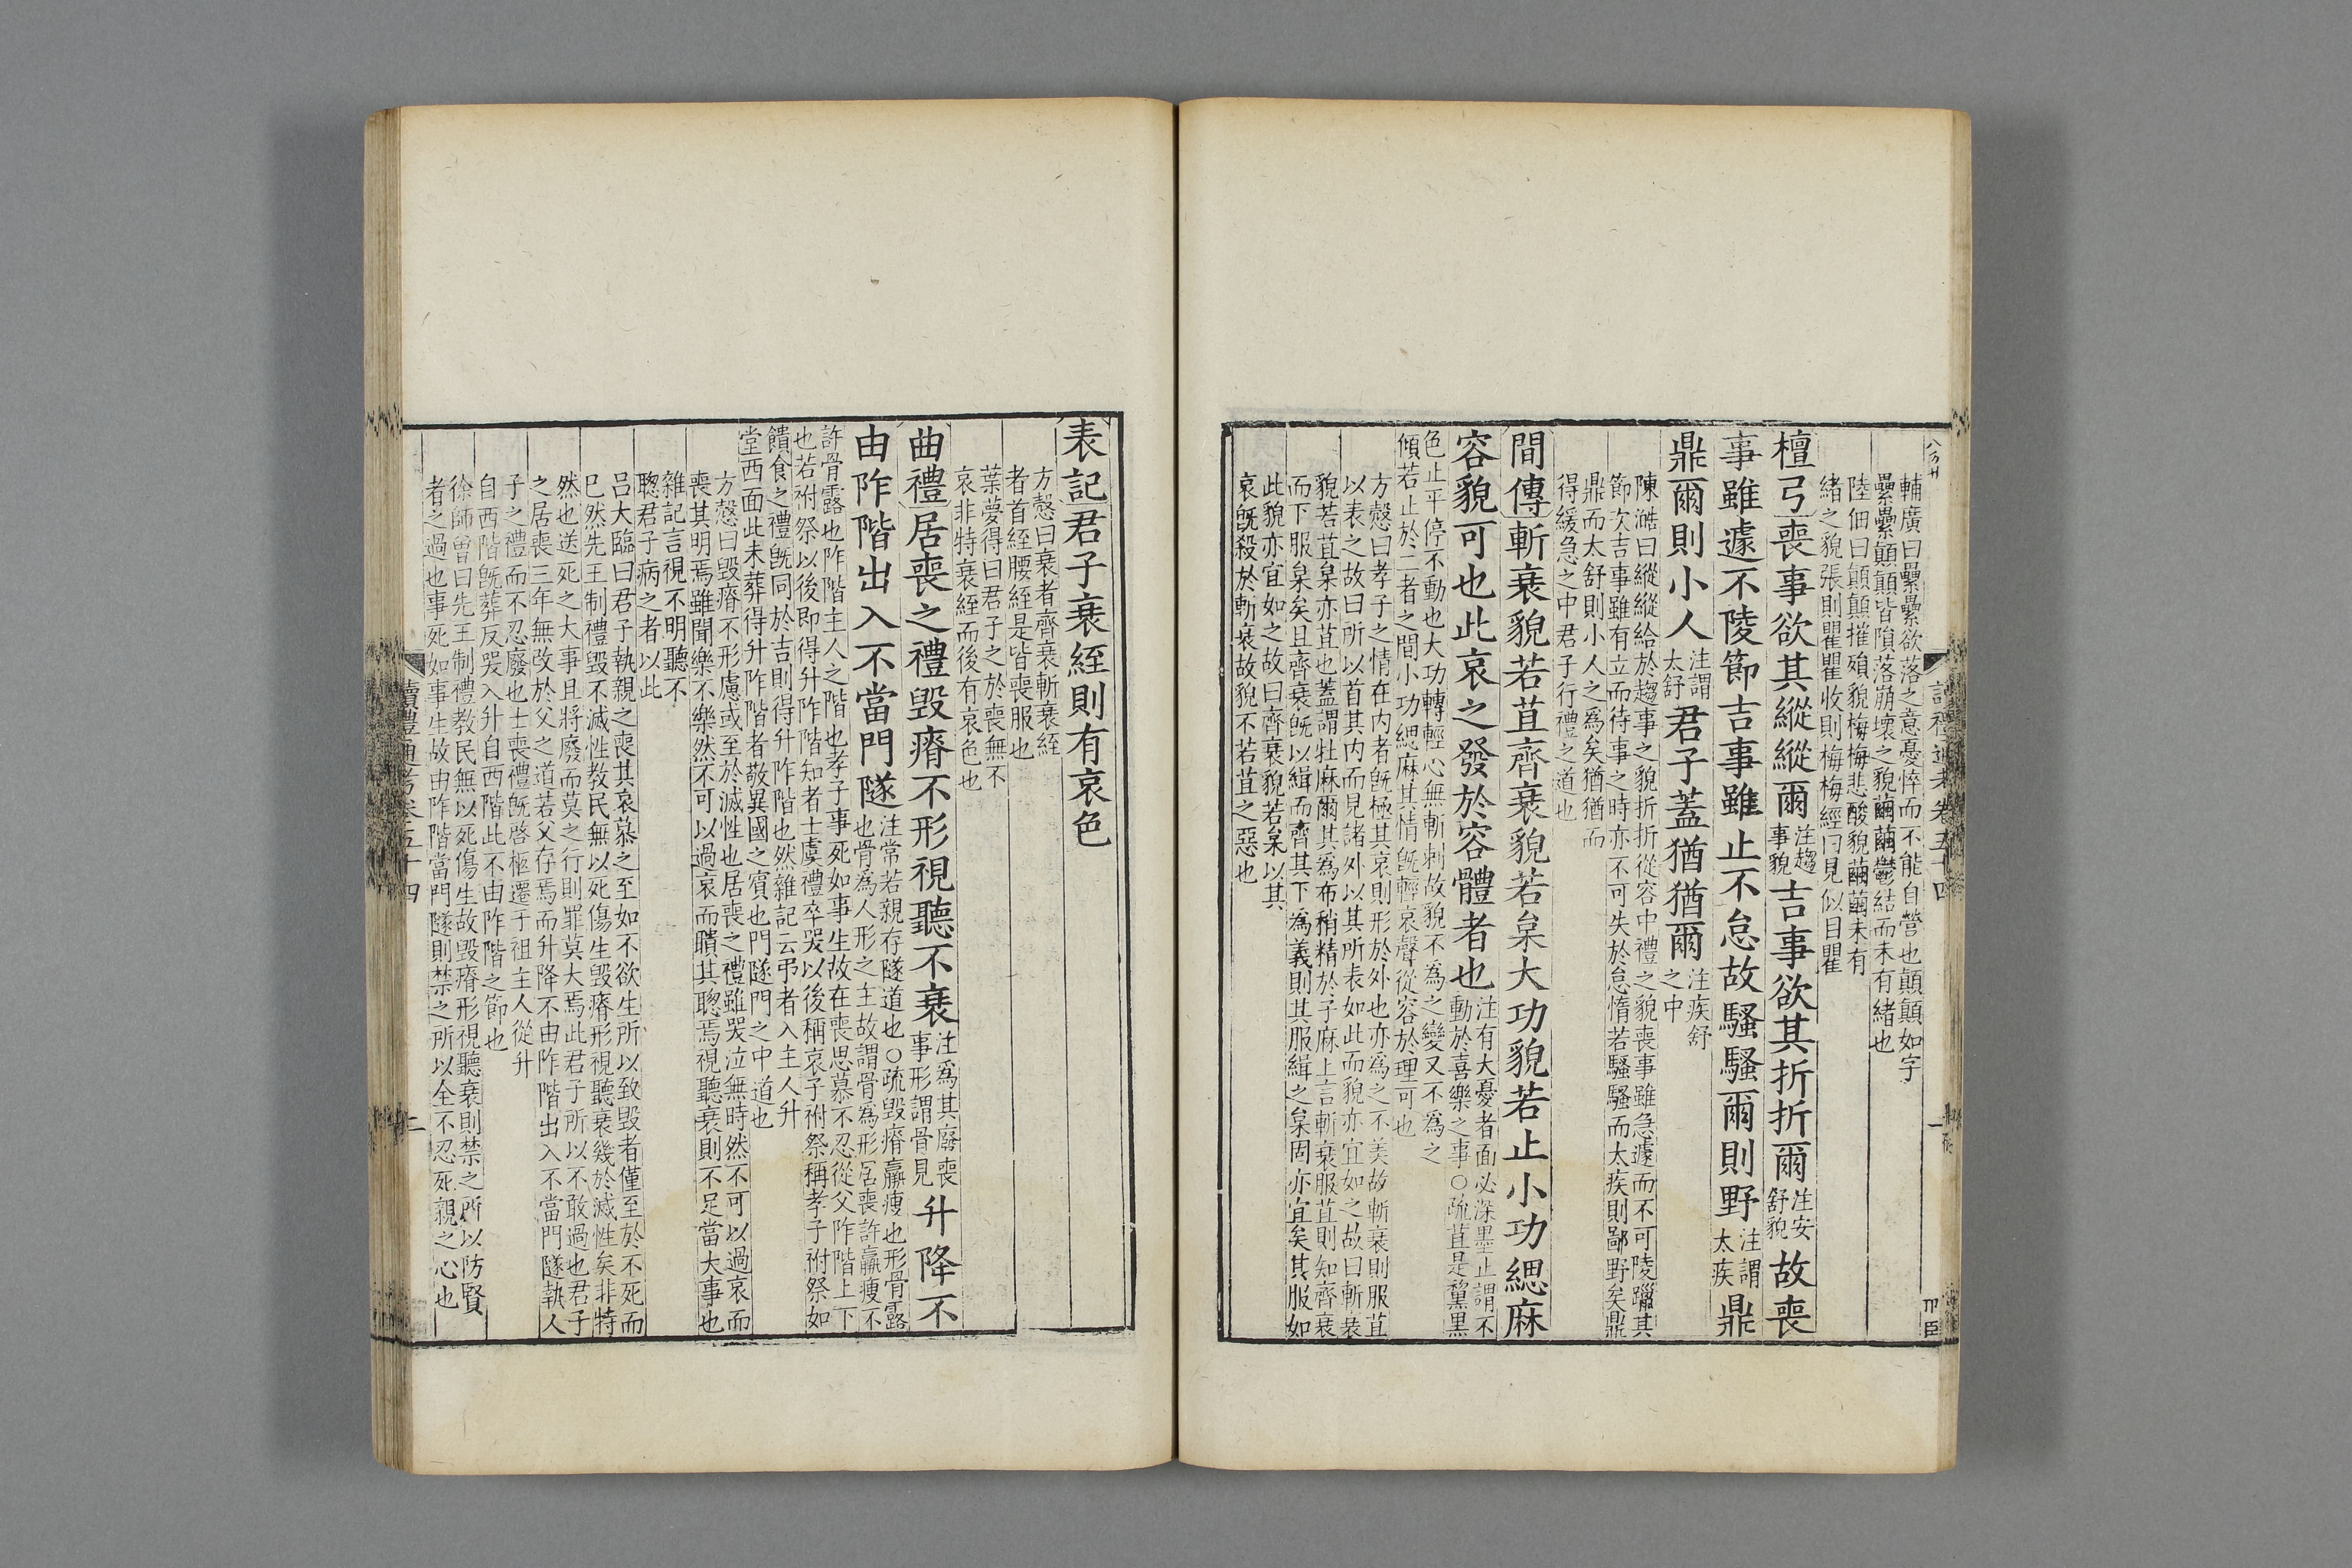 輔廣曰纍纍欲落之意憂悴而不能自營也顛顛如字
纍纍顛顛皆隕落崩壞之貌繭繭鬱結而未有緒也
陸佃曰顛顛摧殞貌梅梅悲酸貌繭繭未有
緒之貌張則瞿瞿收則梅梅經曰見似目瞿
檀弓喪事欲其縱縱爾注趨事貌吉事欲其折折爾注安舒貌故喪
事雖遽不陵節吉事雖止不怠故騷騷爾則野注謂太疾鼎
鼎爾則小人注謂太舒君子蓋猶猶爾注疾舒之中
陳澔曰縱縱給於趨事之貌折折從容中禮之貌喪事雖急遽而不可陵躐其
節次吉事雖有立而待事之時亦不可失於怠惰若騷騷而太疾則鄙野矣鼎
鼎而太舒則小人之為矣猶猶而
得緩急之中君子行禮之道也
間傳斬衰貌若苴齊衰貌若枲大功貌若止小功緦麻
容貌可也此哀之發於容體者也注有大憂者面必深墨止謂不動於喜樂之事○疏苴是黧黑
色止平停不動也大功轉輕心無斬刺故貌不為之變又不為之
傾若止於二者之間小功緦麻其情旣輕哀聲從容於理可也
方慤曰孝子之情在内者旣極其哀則形於外也亦為之不美故斬衰則服苴
以表之故曰所以首其内而見諸外以其所表如此而貌亦宜如之故曰斬衰
貌若苴枲亦苴也蓋謂牡麻爾其為布稍精於子麻上言斬衰服苴則知齊衰
而下服枲矣且齊衰旣以緝而齊其下為義則其服緝之枲固亦宜矣其服如
此貌亦宜如之故曰齊衰貌若枲以其
哀旣殺於斬衰故貌不若苴之惡也
表記君子衰絰則有哀色
方慤曰衰者齊衰斬衰絰
者首絰腰絰是皆喪服也
葉夢得曰君子之於喪無不
哀非特衰絰而後有哀色也
曲禮居喪之禮毀瘠不形視聽不衰注為其廢喪事形謂骨見升降不
由阼階出入不當門隧注常若親存隧道也○疏毀瘠羸瘦也形骨露也骨為人形之主故謂骨為形居喪許羸瘦不
許骨露也阼階主人之階也孝子事死如事生故在喪思慕不忍從父阼階上下
也若祔祭以後即得升阼階知者士虞禮卒哭以後稱哀子祔祭稱孝子祔祭如
饋食之禮旣同於吉則得升阼階也然雜記云弔者入主人升
堂西面此未葬得升阼階者敬異國之賓也門隧門之中道也
方慤曰毀瘠不形慮或至於滅性也居喪之禮雖哭泣無時然不可以過哀而
喪其明焉雖聞樂不樂然不可以過哀而聵其聰焉視聽衰則不足當大事也
雜記言視不明聽不
聰君子病之者以此
呂大臨曰君子執親之喪其哀慕之至如不欲生所以致毀者僅至於不死而
已然先王制禮毀不滅性教民無以死傷生毀瘠形視聽衰幾於滅性矣非特
然也送死之大事且將廢而莫之行則罪莫大焉此君子所以不敢過也君子
之居喪三年無改於父之道若父存焉而升降不由阼階出入不當門隧執人
子之禮而不忍廢也士喪禮旣啓柩遷于祖主人從升
自西階旣葬反哭入升自西階此不由阼階之節也
徐師曾曰先王制禮教民無以死傷生故毀瘠形視聽衰則禁之所以防賢
者之過也事死如事生故由阼階當門隧則禁之所以全不忍死親之心也
讀禮通考卷五十四
二